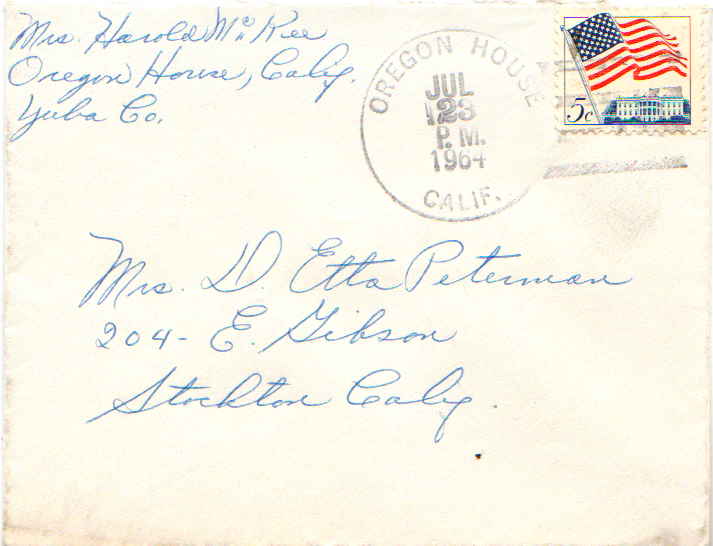 Mrs. Harold McKee
Oregon House, Calif.
Yuba Co.
OREGON HOUSE
JUL
23
P.M.
1964
CALIF.
5c
Mrs. D. Etta Peterman
204 - E. Gibson
Stockton Calif.